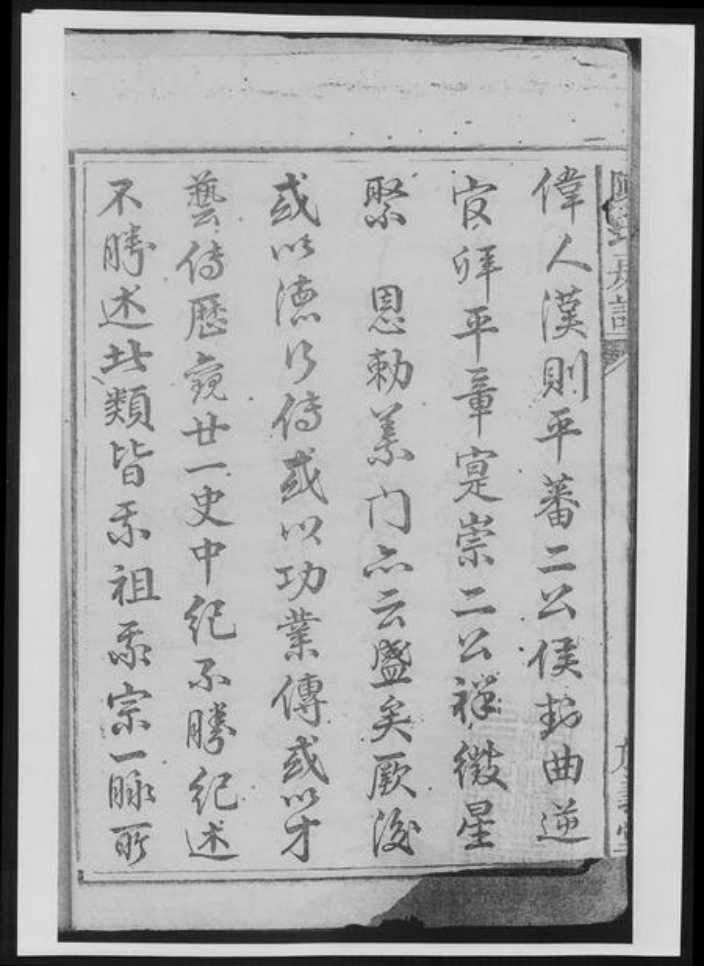 偉人漢則平蕃二公侯封曲逆
官拜平章寔崇二公祥徵星
聚 恩勅義门亦云盛矣厥後
或以德行傳或以功業傳或以才
藝傳歷觀廿一史中紀不勝紀述
不勝述此類皆乘祖乘宗一脉所